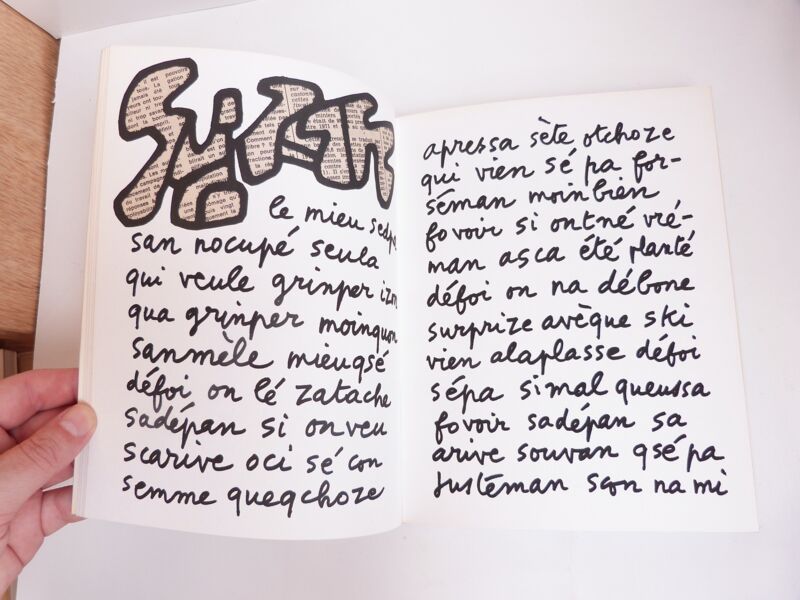 le mieu sedpa
san nocupé seula
qui veule grinper izon
qua grinper moinquon
sanmèle mieuqsé
défoi on lé zatache
sadépan si onveu
scarive oci sé con
semme queqchoze
apressa sète otchoze
qui vien sé pa for-
séman moinbien
fovoir si ontné vré-
man asca été planté
défoi on na débone
surprize avèque ski
vien alaplasse défoi
sépa simal queussa
fovoir sadépan sa
arive souvan qsé pa
justéman scon na mi